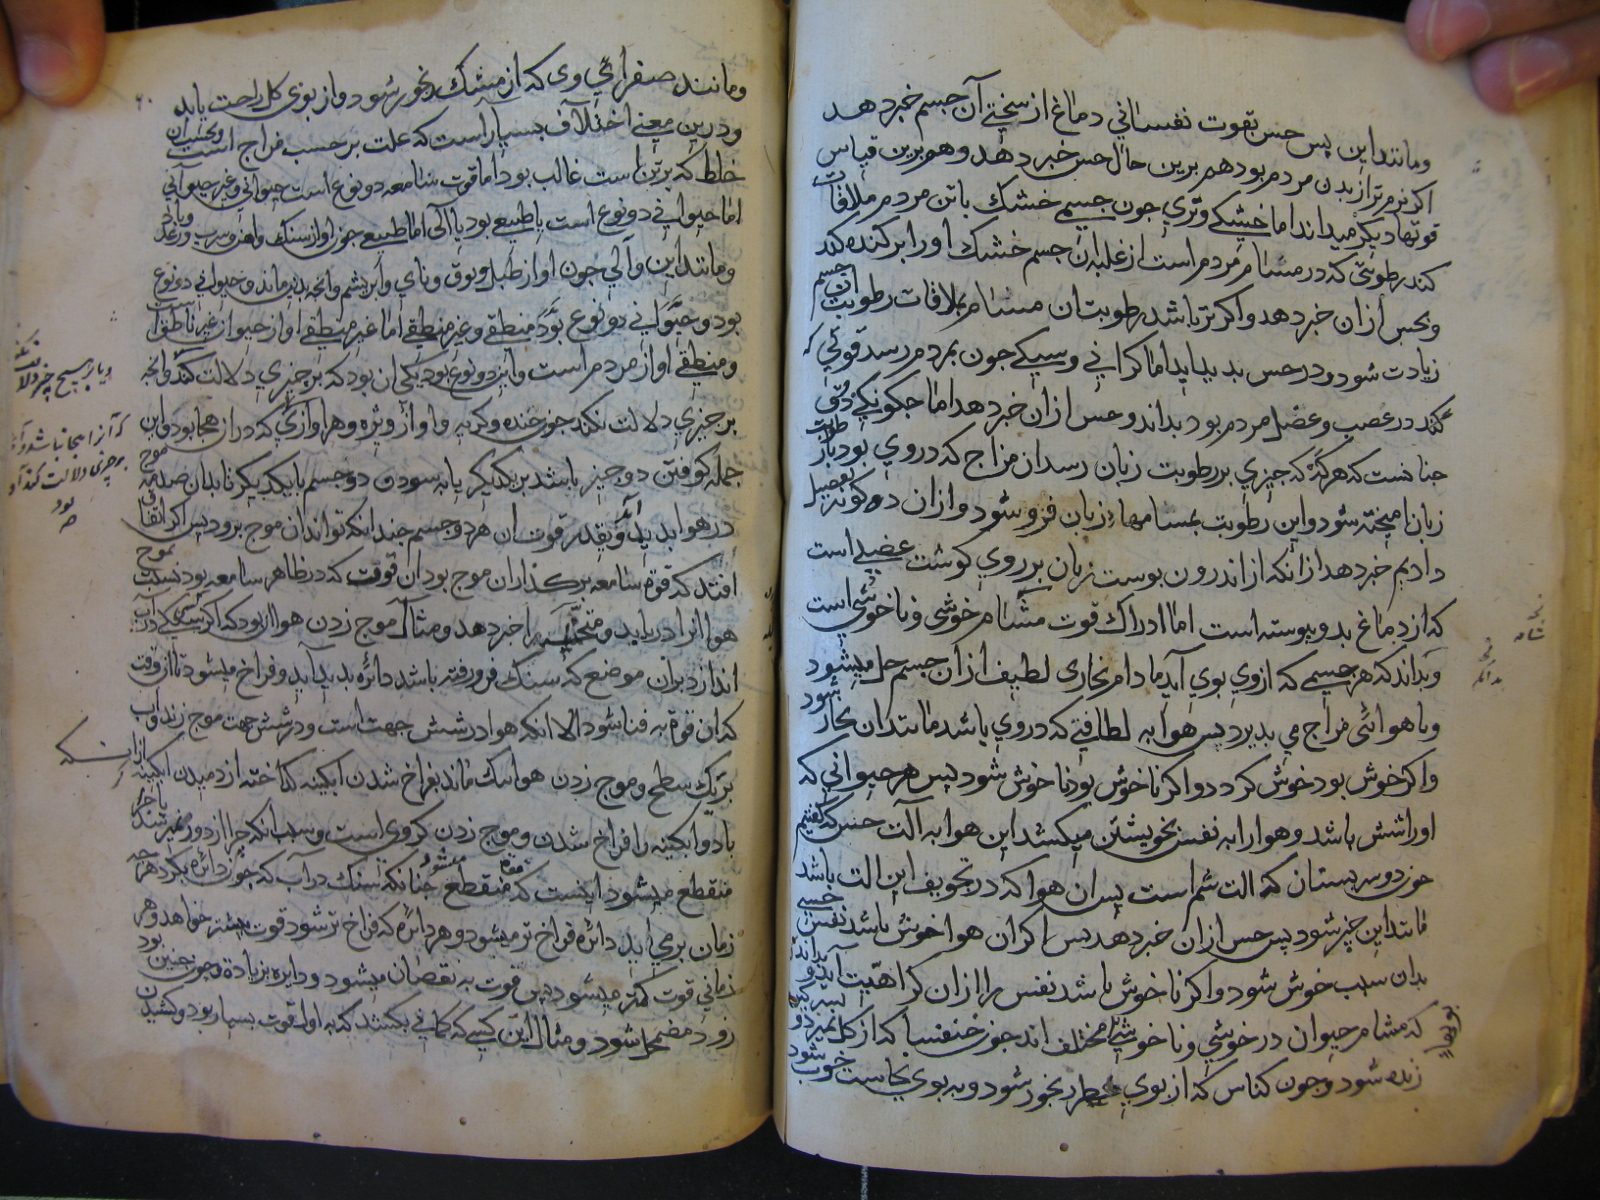 ومانند این پس حس بقوت نفسانی دماغ از سختی آن جسم خبر دهد
اکر نرم تر از بدن مردم بود هم برین حال حس خبر دهد وهم برین قیاس
قوتها دیکر میداند اما خشکی وتری چون جسمی خشک با تن مردم ملاقات
کند رطوبتی که در مشام مردم است از غلبه آن جسم خشک اورا برکنده کند
وبحس ازان خبر دهد واکر تر باشد رطوبت آن مسام بملاقات رطوبت آن جسم
زیادت شود ودر حس بدید اید اما کرانی وسبکی چون بمردم رسد قوتی که
کند در عصب وعضل مردم بود بداند وحس ازان خبر دهد اما چکونکی ذوق
چنانست که هرکه که چیزی بر رطوبت زبان رسد از مزاج که در وی بود با رطوبت
زبان امیخته شود واین رطوبت بمسامها زبان فرو شود وازان ده کونه تفصیل
دادیم خبر دهد از انکه از اندرون پوست زبان بر روی کوشت عضلی است
که از دماغ بدو پیوسته است اما ادراک قوت مشام خوشی وناخوشی است
وبداند که هر جسمی که ازوی بوی آید مادام بخاری لطیف ازان جسم حل میشود
وبا هوائی مزاج می پذیرد پس هوا به لطافتی که در وی باشد مانند ان بخار شود
واکر خوش بود خوش کردد واکر ناخوش بود ناخوش شود پس هر حیوانی که
اورا شش باشد وهوارا به نفس بخویشتن میکشد این هوا به آلت حس که کفتیم
چون دو سر بستان که الت شم است پس ان هوا که در تجویف این الت باشد
مانند این چیز شود پس حس ازان خبر دهد پس اکر ان هوا خوش باشد نفس حسی
بدان سبب خوش شود واکر ناخوش باشد نفس را ازان کراهیت آید وبداند
که مشام حیوان در خوشی وناخوشی مختلف اند چون خنفسا که از کل بمیرد و بسرکین
زنده شود وچون کناس که از بوی عطر رنجور شود وبه بوی نجاست خوب شود
بویها
ومانند صفرائی وی که از مشک رنجور شود واز بوی کل راحت یابد
ودرین معنی اختلاف بسیار است که علت بر حسب مزاج است وبحسب ان
خلط که بر تن است غالب بود اما قوت سامعه دو نوع است حیوانی وغیر حیوانی
اما حیوانی دو نوع است یا طبیعی بود یا آلی اما طبیعی چون اواز سنک واهن وسرب ورعد وباد
ومانند این وآلی چون اواز طبل وبوق ونای وابریشم وانچه بدین ماند وحیوانی دو نوع
بود وحیوانی دو نوع بود منطقی وغیر منطقی اما غیر منطقی اواز حیوان غیر ناطق است
ومنطقی اواز مردم است واین دو نوع بود یکی ان بود که بر چیزی دلالت کند وانچه
بر چیزی دلالت نکند چون خنده وکریه واواز ویژه وهر اوازی که دراز هجا بود واین
جمله کوفتن دو چیز باشد بر یکدیکر یا بسودن دو جسم با یکدیکر تا بدان صدمه موج
در هوا بدید آید وبقدر قوت ان هر دو جسم چندانکه تواند ان موج برود پس اکر اتفاق
افتد که قوة سامعه بر کذار ان موج بود ان قوت که در ظاهر سامعه بود نسبت موج
هوا انرا دریابد ومتخیله را خبر دهد ومثال موج زدن هوا ان بود که اکر کسی سنکی در آب
اندازد بران موضع که سنک فرو رفته باشد دائره بدید آید وفراخ میشود تا ان وقت
که ان قوة به فنا شود الا انکه هوا در شش جهت است ودر شش جهت موج زند وآب
بر یک سطح وموج زدن هوا بدان ماند بفراخ شدن ابکینه کداخته از دمیدن ابکینه
باد وابکینه را فراخ شدن وموج زدن کروی است وسبب انکه چرا از دور نمی شنود یا چرا
منقطع میشود اینست که منقطع میشود چنانکه سنک در آب که چون دائره بکرد هرچه
زمان برمی آید دائره فراخ تر میشود وهر دائره که فراخ تر شود قوت بیشتر خواهد وهر
زمانی قوت کمتر میشود پس قوت به نقصان میشود ودایره بزیاده وچون چنین بود
زود مضمحل شود ومثال این کسی که کمانی بکشد که به اول قوت بسیار بود وکشیدن